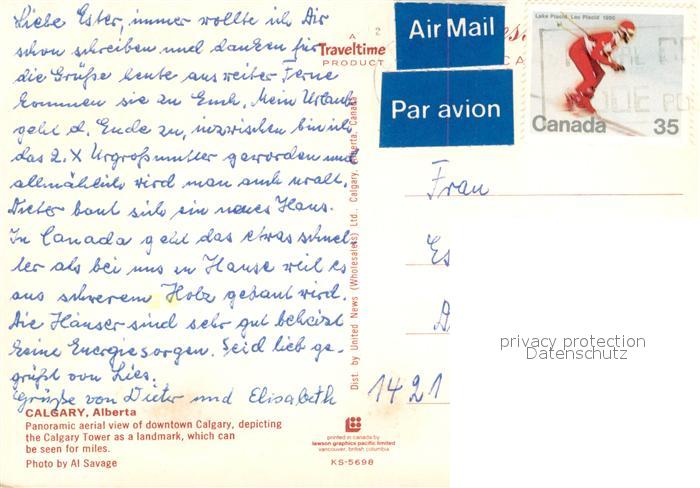 Liebe Ester, immer wollte ich Dir
schon schreiben und danken für
die Grüße heute aus weiter Ferne
kommen sie zu Euch. Mein Urlaub
geht d. Ende zu, inzwischen bin ich
das 2. X Urgroßmutter geworden und
allmählich wird man auch uralt.
Dieter baut sich ein neues Haus.
In Canada geht das etwas schnel-
ler als bei uns zu Hause weil es
aus schwerem Holz gebaut wird.
Die Häuser sind sehr gut beheizt
keine Energiesorgen. Seid lieb ge-
grüßt von Lies.
Grüße von Dieter und Elisabeth
CALGARY, Alberta
Panoramic aerial view of downtown Calgary, depicting
the Calgary Tower as a landmark, which can
be seen for miles.
Photo by Al Savage
A
Traveltime
PRODUCT
2
Dist. by United News (Wholesalers) Ltd., Calgary, Alberta, Canada
printed in canada by
lawson graphics pacific limited
vancouver, british columbia
KS-5698
Air Mail
Par avion
Lake Placid, Lac Placid 1980
Canada 35
Frau
Es
1421
privacy protection
Datenschutz